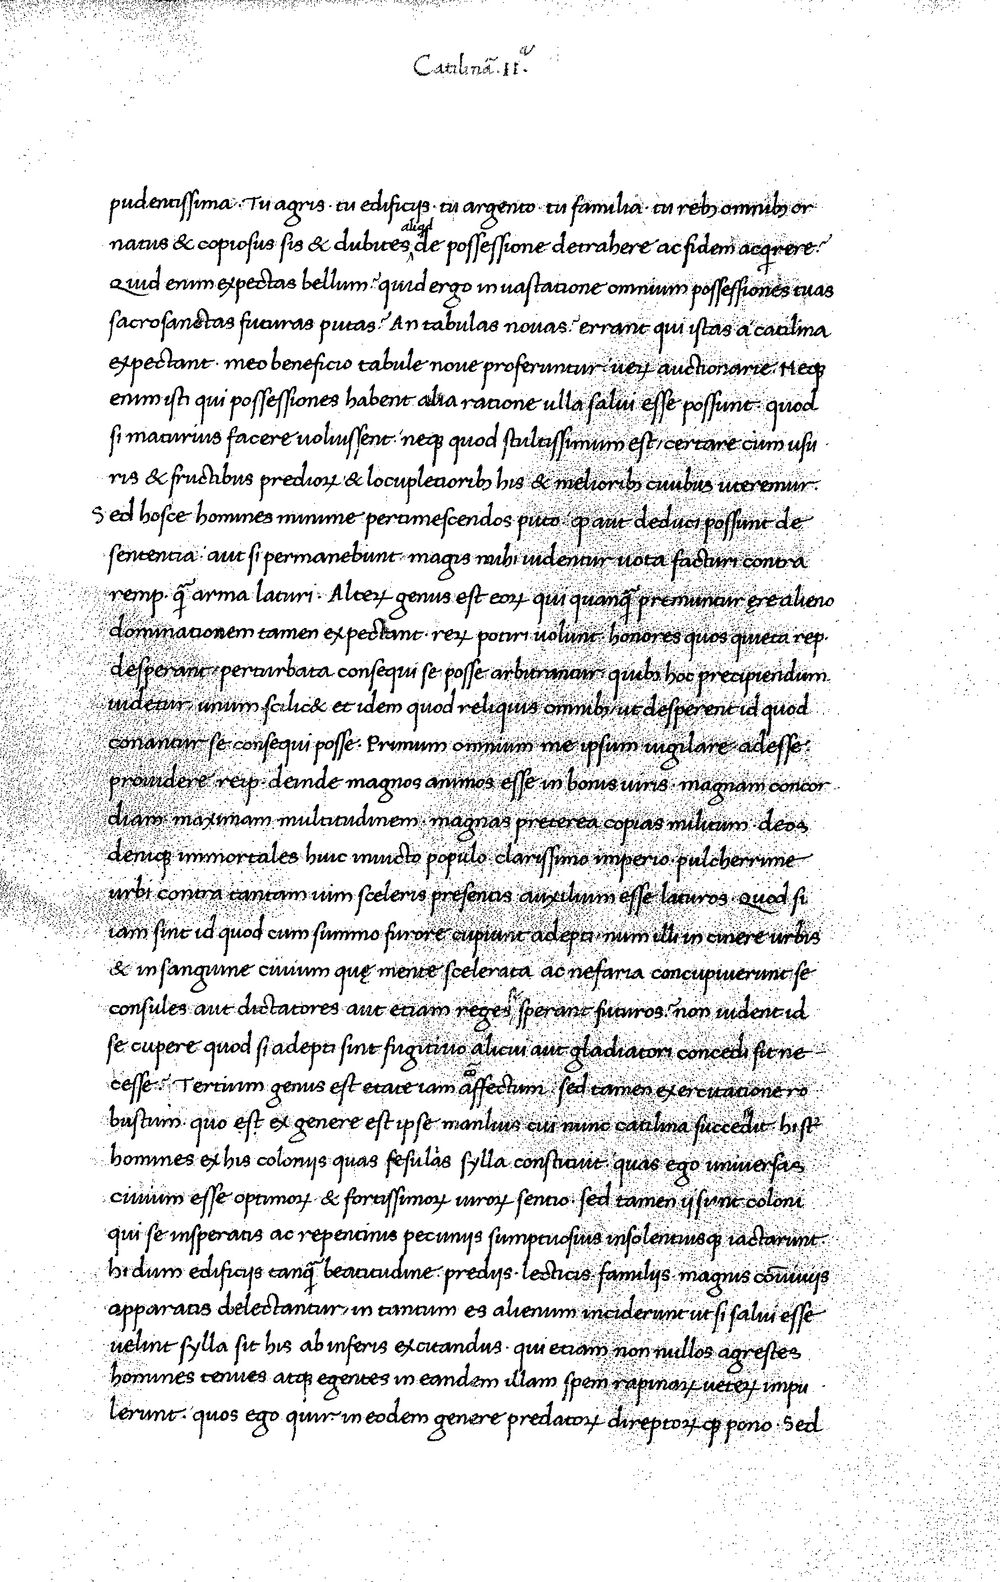 Catilinā. II.ᵃ
pudentissima. Tu agris. tu edificijs. tu argento. tu familia. tu rebꝫ omnibꝫ or
natus & copiosus sis & dubites aliqd de possessione detrahere ac fidem acqrere?
Quid enim expectas bellum? quid ergo in uastatione omnium possessiones tuas
sacrosanctas futuras putas? An tabulas nouas? errant qui istas a catilina
expectant. meo beneficio tabule noue proferuntur. ueꝝ auctionarie. Neqꝫ
enim isti qui possessiones habent alia ratione ulla salui esse possunt. quod
si maturius facere uoluissent. neqꝫ quod stultissimum est, certare cum usu
ris & fructibus predioꝝ & locupletioribꝫ his & melioribꝫ ciuibus uteremur.
Sed hosce homines minime pertimescendos puto. ꝙ aut deduci possunt de
sententia. aut si permanebunt. magis mihi uidentur uota facturi contra
remp. q̄ arma laturi. Alteꝝ genus est eoꝝ qui quanq̄ premuntur ere alieno
dominationem tamen expectant. reꝝ potiri uolunt. honores quos quieta rep.
desperant. perturbata consequi se posse arbitrantur. quibꝫ hoc precipiendum
uidetur. unum scilic& et idem quod reliquis omnibꝫ, ut desperent id quod
conantur se consequi posse. Primum omnium me ipsum uigilare. adesse.
prouidere reip. deinde magnos animos esse in bonis uiris. magnam concor
diam. maximam multitudinem. magnas preterea copias militum. deos
deniqꝫ immortales huic inuicto populo. clarissimo imperio. pulcherrime
urbi contra tantam uim sceleris presentis auxilium esse laturos. Quod si
iam sint id quod cum summo furore cupiunt adepti. num illi in cinere urbis
& in sanguine ciuium quę mente scelerata ac nefaria concupiuerunt se
consules aut dictatores aut etiam reges sperant futuros? non uident id
se cupere quod si adepti sint fugitiuo alicui aut gladiatori concedi sit ne
cesse. Tertium genus est etate iam affectum. sed tamen exercitatione ro
bustum. quo est ex genere est ipse manlius cui nunc catilina succedit. hi st̄
homines ex his colonijs quas fesulas sylla constituit. quas ego uniuersas
ciuium esse optimoꝝ & fortissimoꝝ uiroꝝ sentio. sed tamen ij sunt coloni
qui se insperatis ac repentinis pecunijs sumptuosius insolentiusqꝫ iactarunt.
hi dum edificijs tanq̄ beatitudine. predijs. lecticis. familijs. magnis cōuiuijs
apparatis delectantur, in tantum es alienum inciderunt ut si salui esse
uelint sylla sit his ab inferis excitandus. qui etiam non nullos agrestes
homines tenues atqꝫ egentes in eandem illam spem rapinaꝝ ueteꝝ impu
lerunt. quos ego quir. in eodem genere predatoꝝ direptoꝝ ꝙ pono. Sed